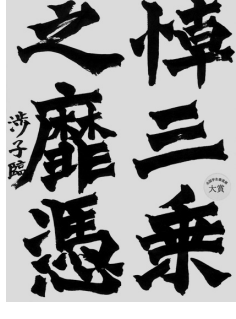 悼三乗
之靡憑
渉子臨
大賞